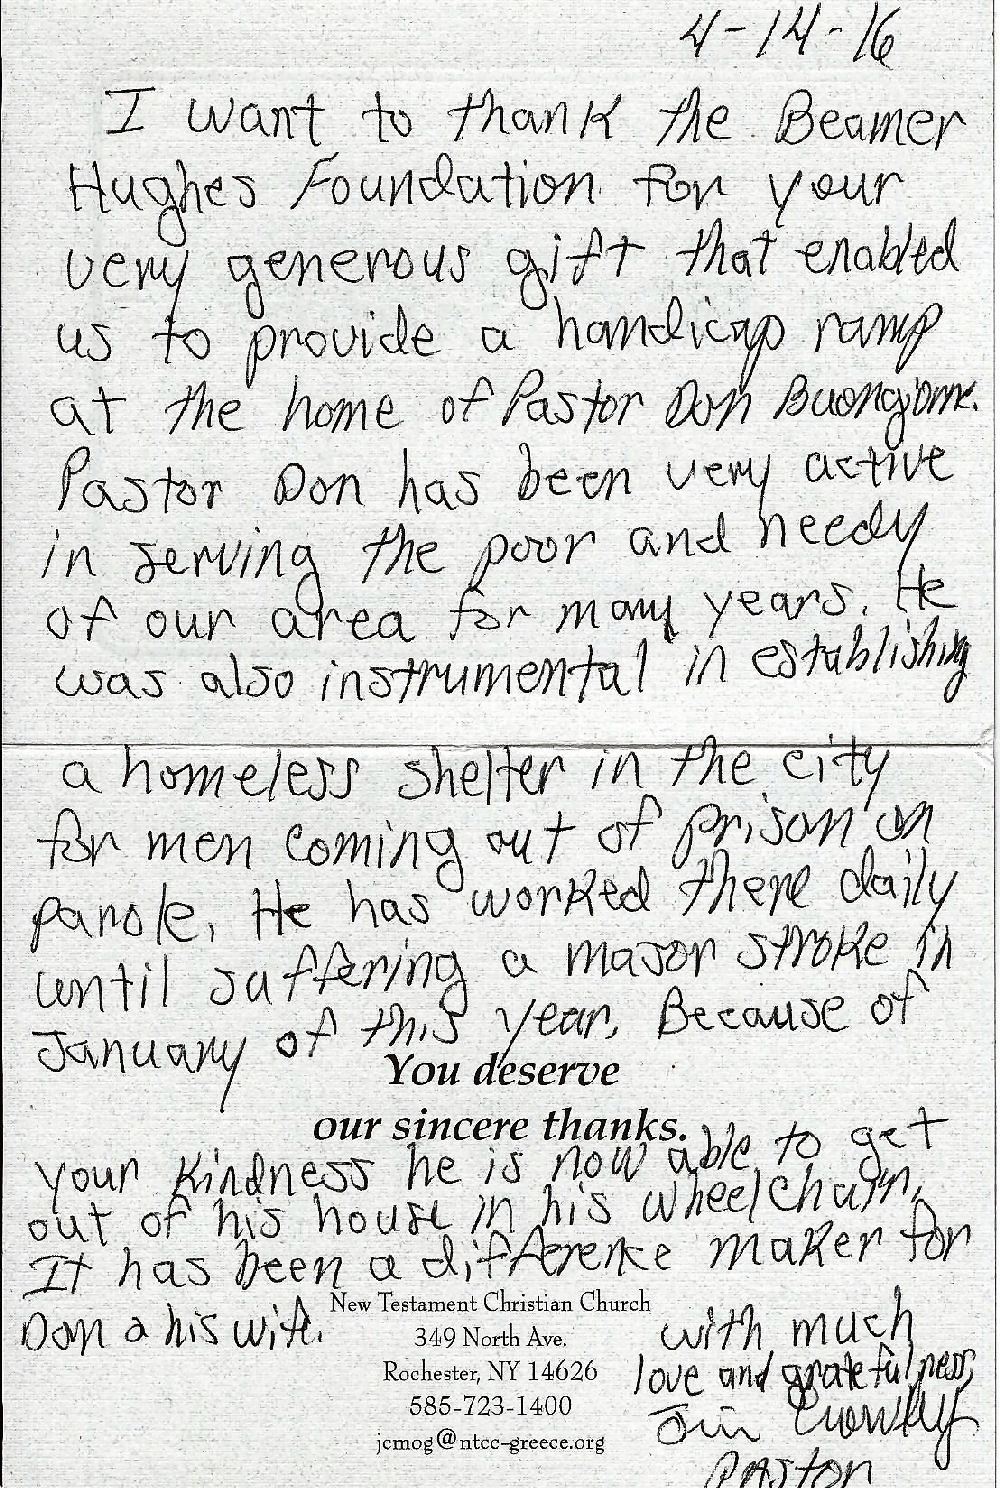 4-14-16
I want to thank the Beamer
Hughes Foundation for your
very generous gift that enabled
us to provide a handicap ramp
at the home of Pastor Don Buongiorne.
Pastor Don has been very active
in serving the poor and needy
of our area for many years. He
was also instrumental in establishing
a homeless shelter in the city
for men coming out of prison on
parole. He has worked there daily
until suffering a major stroke in
January of this year. Because of
You deserve
our sincere thanks.
your kindness he is now able to get
out of his house in his wheelchair.
It has been a difference maker for
Don a his wife.
New Testament Christian Church
349 North Ave.
Rochester, NY 14626
585-723-1400
jcmog@ntcc-greece.org
with much
love and gratefulness,
Jim Crowley
Pastor